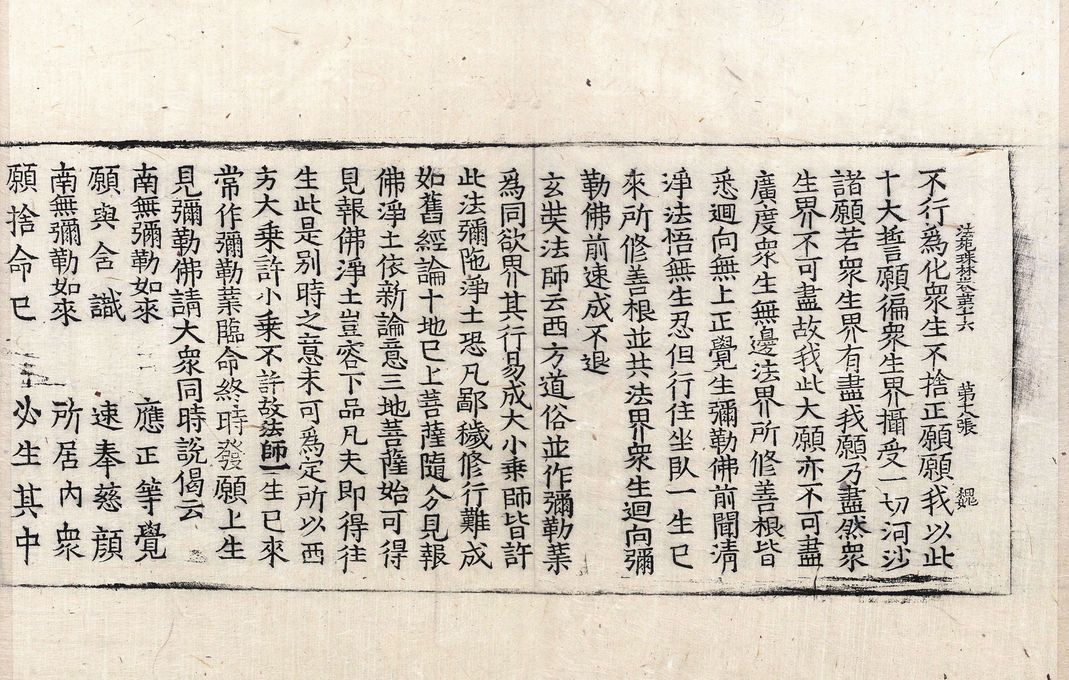 法苑珠林卷第十六　第十八張　槐
不行爲化衆生不捨正願願我以此
十大誓願徧衆生界攝受一切河沙
諸願若衆生界有盡我願乃盡然衆
生界不可盡故我此大願亦不可盡
廣度衆生無邊法界所修善根皆
悉迴向無上正覺生彌勒佛前聞清
淨法悟無生忍但行住坐臥一生已
來所修善根並共法界衆生迴向彌
勒佛前速成不退
玄奘法師云西方道俗並作彌勒業
爲同欲界其行易成大小乘師皆許
此法彌陁淨土恐凡鄙穢修行難成
如舊經論十地已上菩薩隨分見報
佛淨土依新論意三地菩薩始可得
見報佛淨土豈容下品凡夫即得往
生此是别時之意未可爲定所以西
方大乘許小乘不許故法師一生已來
常作彌勒業臨命終時發願上生
見彌勒佛請大衆同時說偈云
南無彌勒如來　應正等覺
願與含識　速奉慈顔
南無彌勒如來　所居內衆
願捨命已　必生其中